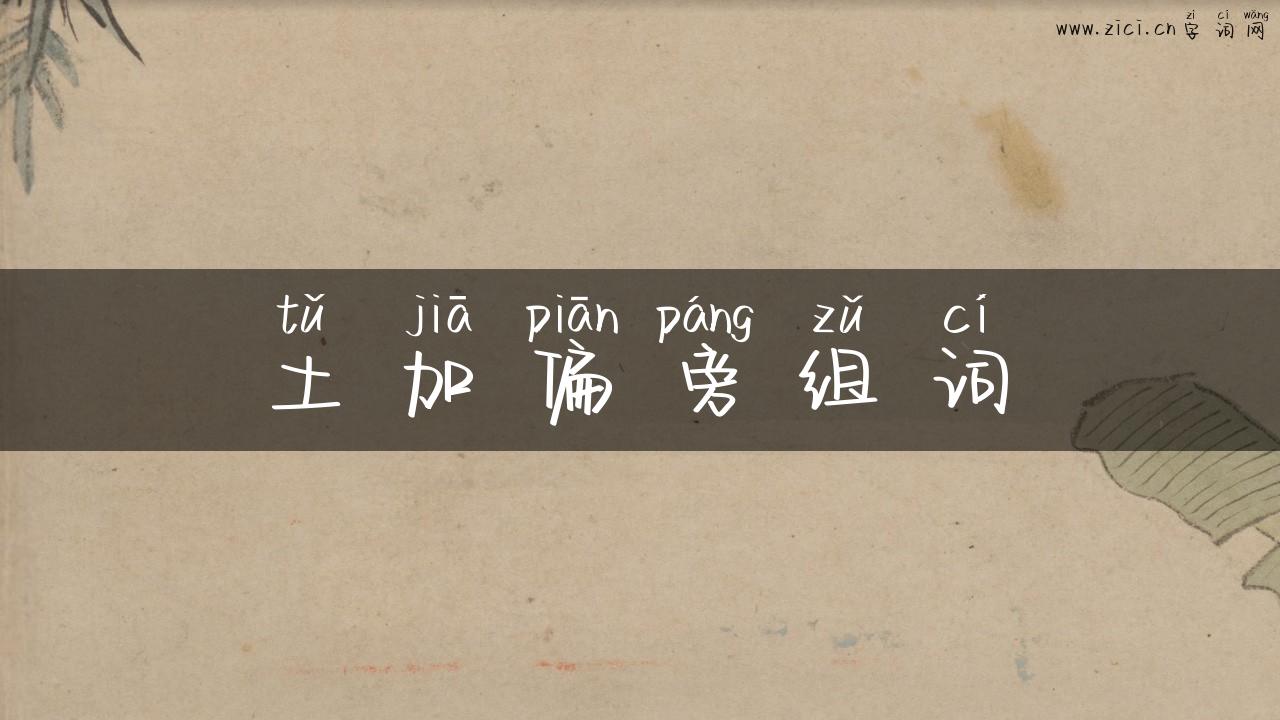 zì cí wǎng
www.zici.cn 字词网
tǔ jiā piān páng zǔ cí
土加偏旁组词